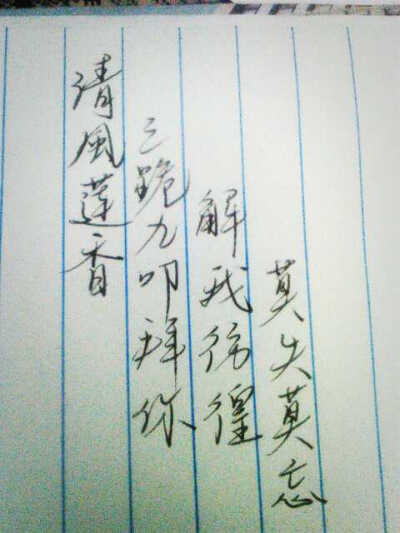 清風蓮香
三跪九叩拜你
解我彷徨
莫失莫忘